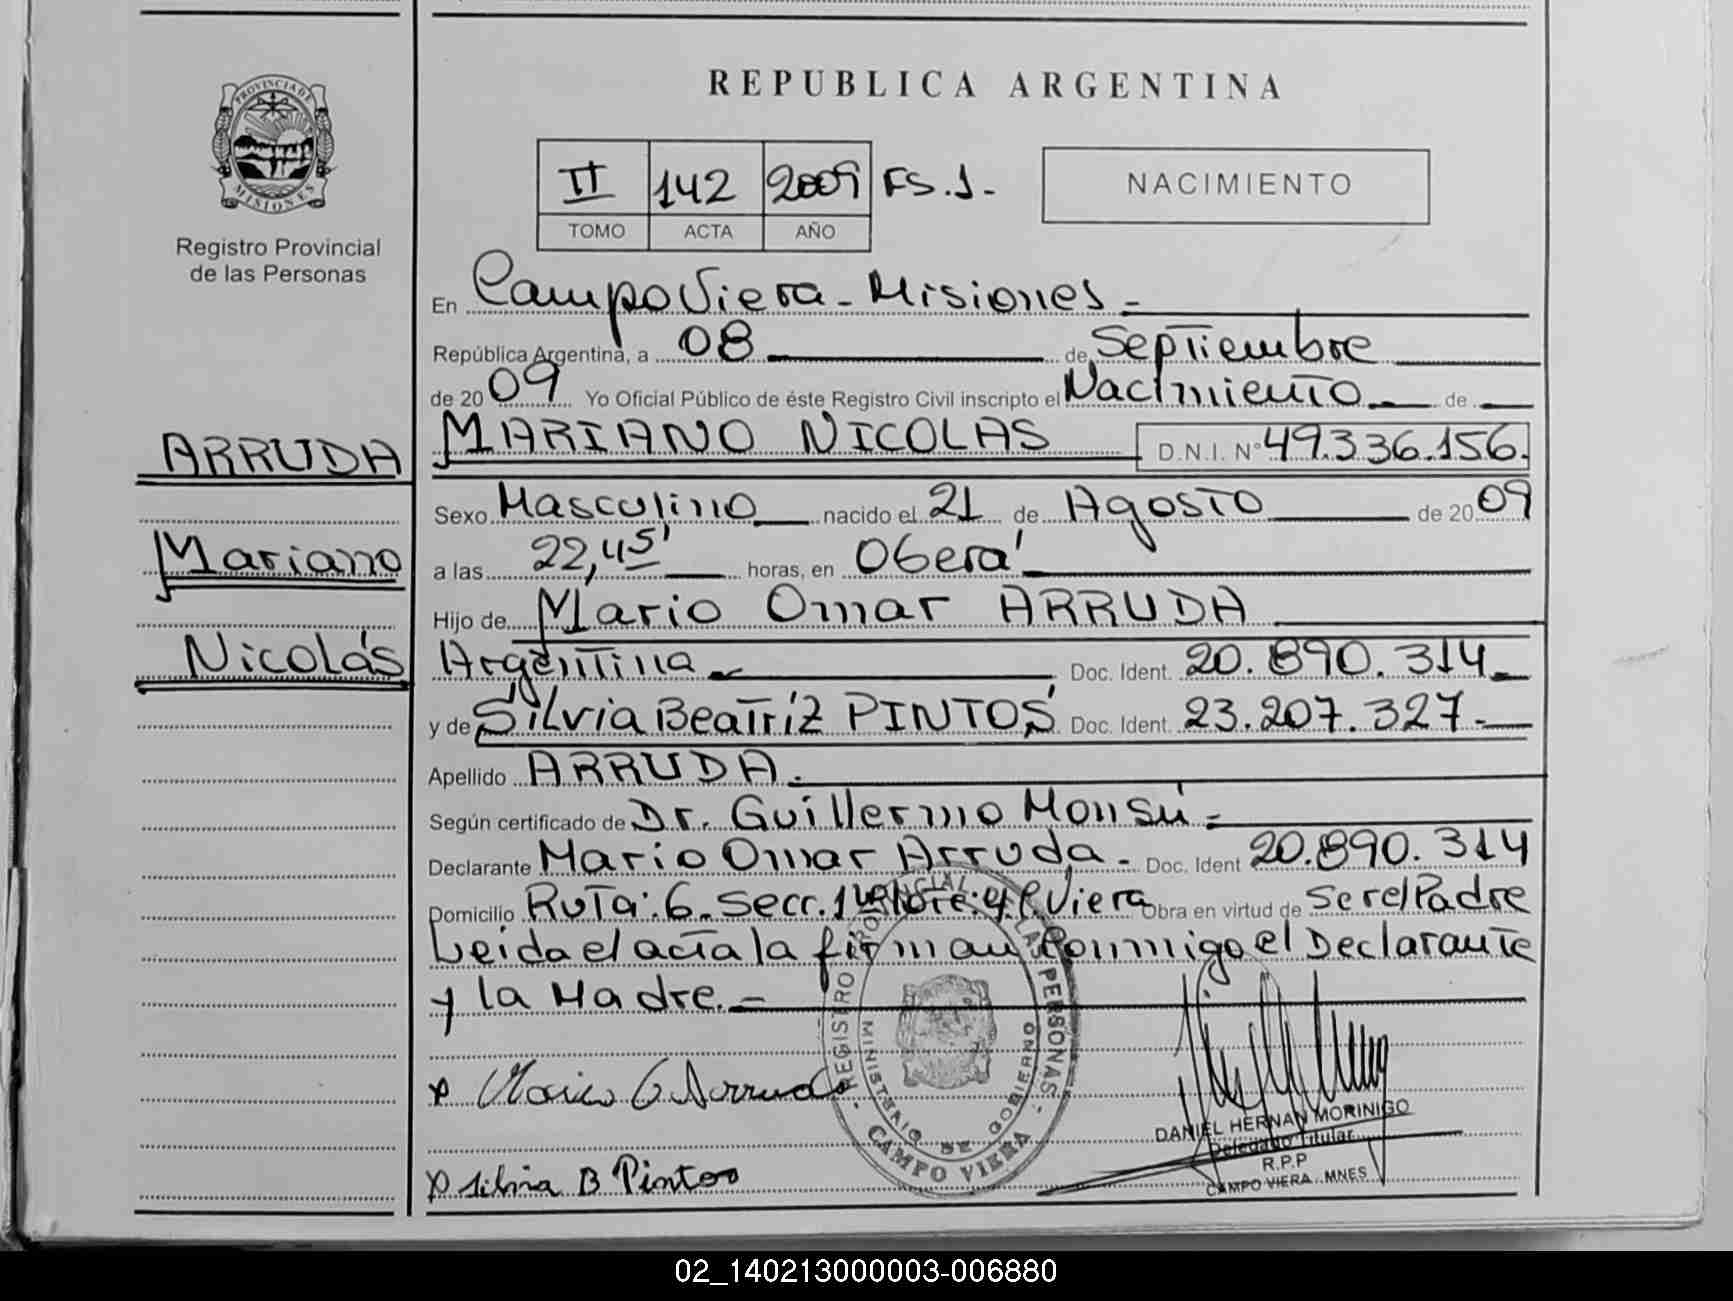 REPUBLICA ARGENTINA
PROVINCIA DE MISIONES
Registro Provincial
de las Personas
II 142 2009 FS.1.-
TOMO ACTA AÑO
NACIMIENTO
En Campo Viera - Misiones -
República Argentina, a 08 de Septiembre
de 2009 Yo Oficial Público de éste Registro Civil inscripto el Nacimiento de
ARRUDA
Mariano
Nicolás
MARIANO NICOLAS D.N.I. Nº 49.336.156.
Sexo Masculino nacido el 21 de Agosto de 2009
a las 22,45' horas, en Oberá
Hijo de Mario Omar ARRUDA
Argentina Doc. Ident. 20.890.314
y de Silvia Beatríz PINTOS Doc. Ident. 23.207.327.-
Apellido ARRUDA.
Según certificado de Dr. Guillermo Monsú.-
Declarante Mario Omar Arruda - Doc. Ident 20.890.314
Domicilio Ruta: 6 Secc. 1 Lote: 4 C. Viera Obra en virtud de Ser el Padre
Leida el acta la firman Conmigo el Declarante
y la Madre.-
x Mario O Arruda
REGISTRO PROVINCIAL DE LAS PERSONAS - CAMPO VIERA -
MINISTERIO DE GOBIERNO
DANIEL HERNAN MORINIGO
Delegado Titular
R.P.P
CAMPO VIERA - MNES
x Silvia B Pintos
02_140213000003-006880